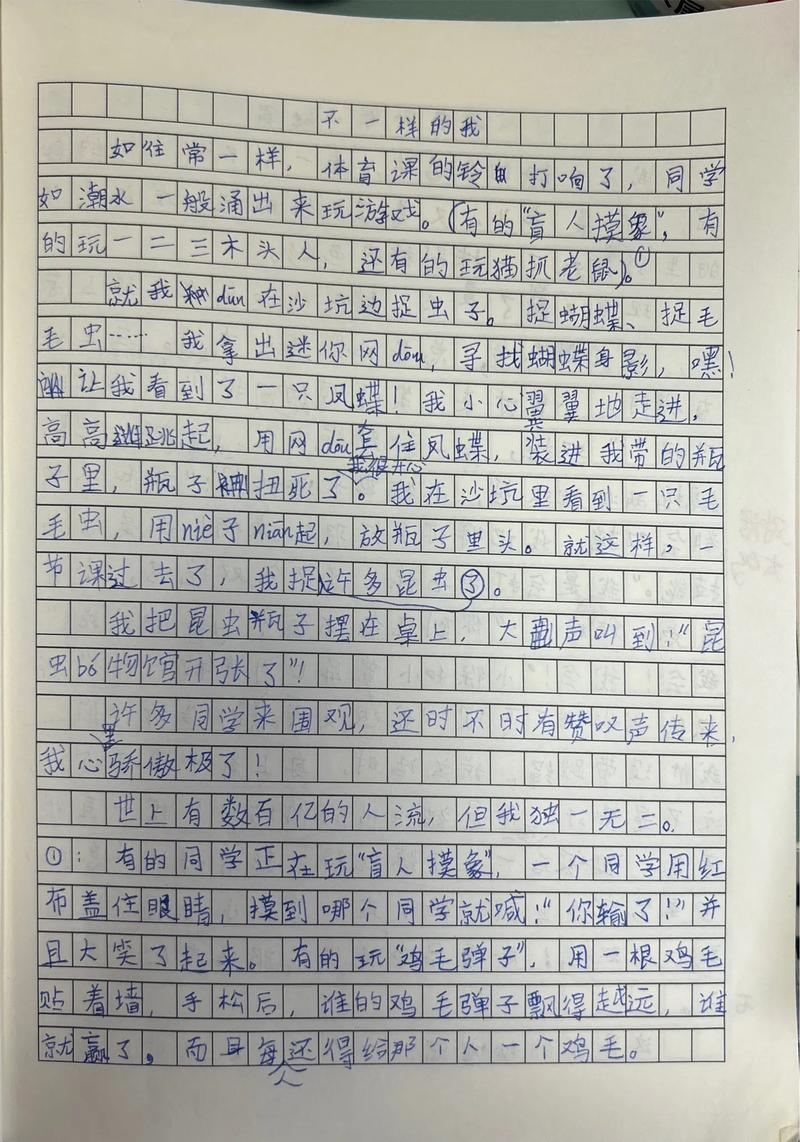 不一样的我
如住常一样，体育课的铃打响了，同学
如潮水一般涌出来玩游戏。(有的“盲人摸象”，有
的玩一二三木头人，还有的玩猫抓老鼠)。①
就我dūn在沙坑边捉虫子。捉蝴蝶、捉毛
毛虫……我拿出迷你网dōu，寻找蝴蝶身影，嘿！
让我看到了一只凤蝶！我小心翼翼地走进，
高高跳起，用网dōu套住凤蝶，装进我带的瓶
我很开心
子里，瓶子扭死了。我在沙坑里看到一只毛
毛虫，用niè子niān起，放瓶子里头。就这样，一
节课过去了，我捉许多昆虫了。
我把昆虫瓶子摆在桌上，大声叫到！“昆
虫bó物馆开张了”！
许多同学来围观，还时不时有赞叹声传来，
里
我心骄傲极了！
世上有数百亿的人流，但我独一无二。
①：有的同学正在玩“盲人摸象”，一个同学用红
布盖住眼睛，摸到哪个同学就喊！“你输了！”并
且大笑了起来。有的玩“鸡毛弹子”，用一根鸡毛
贴着墙，手松后，谁的鸡毛弹子飘得越远，谁
就赢了。而且每还得给那个人一个鸡毛。
人